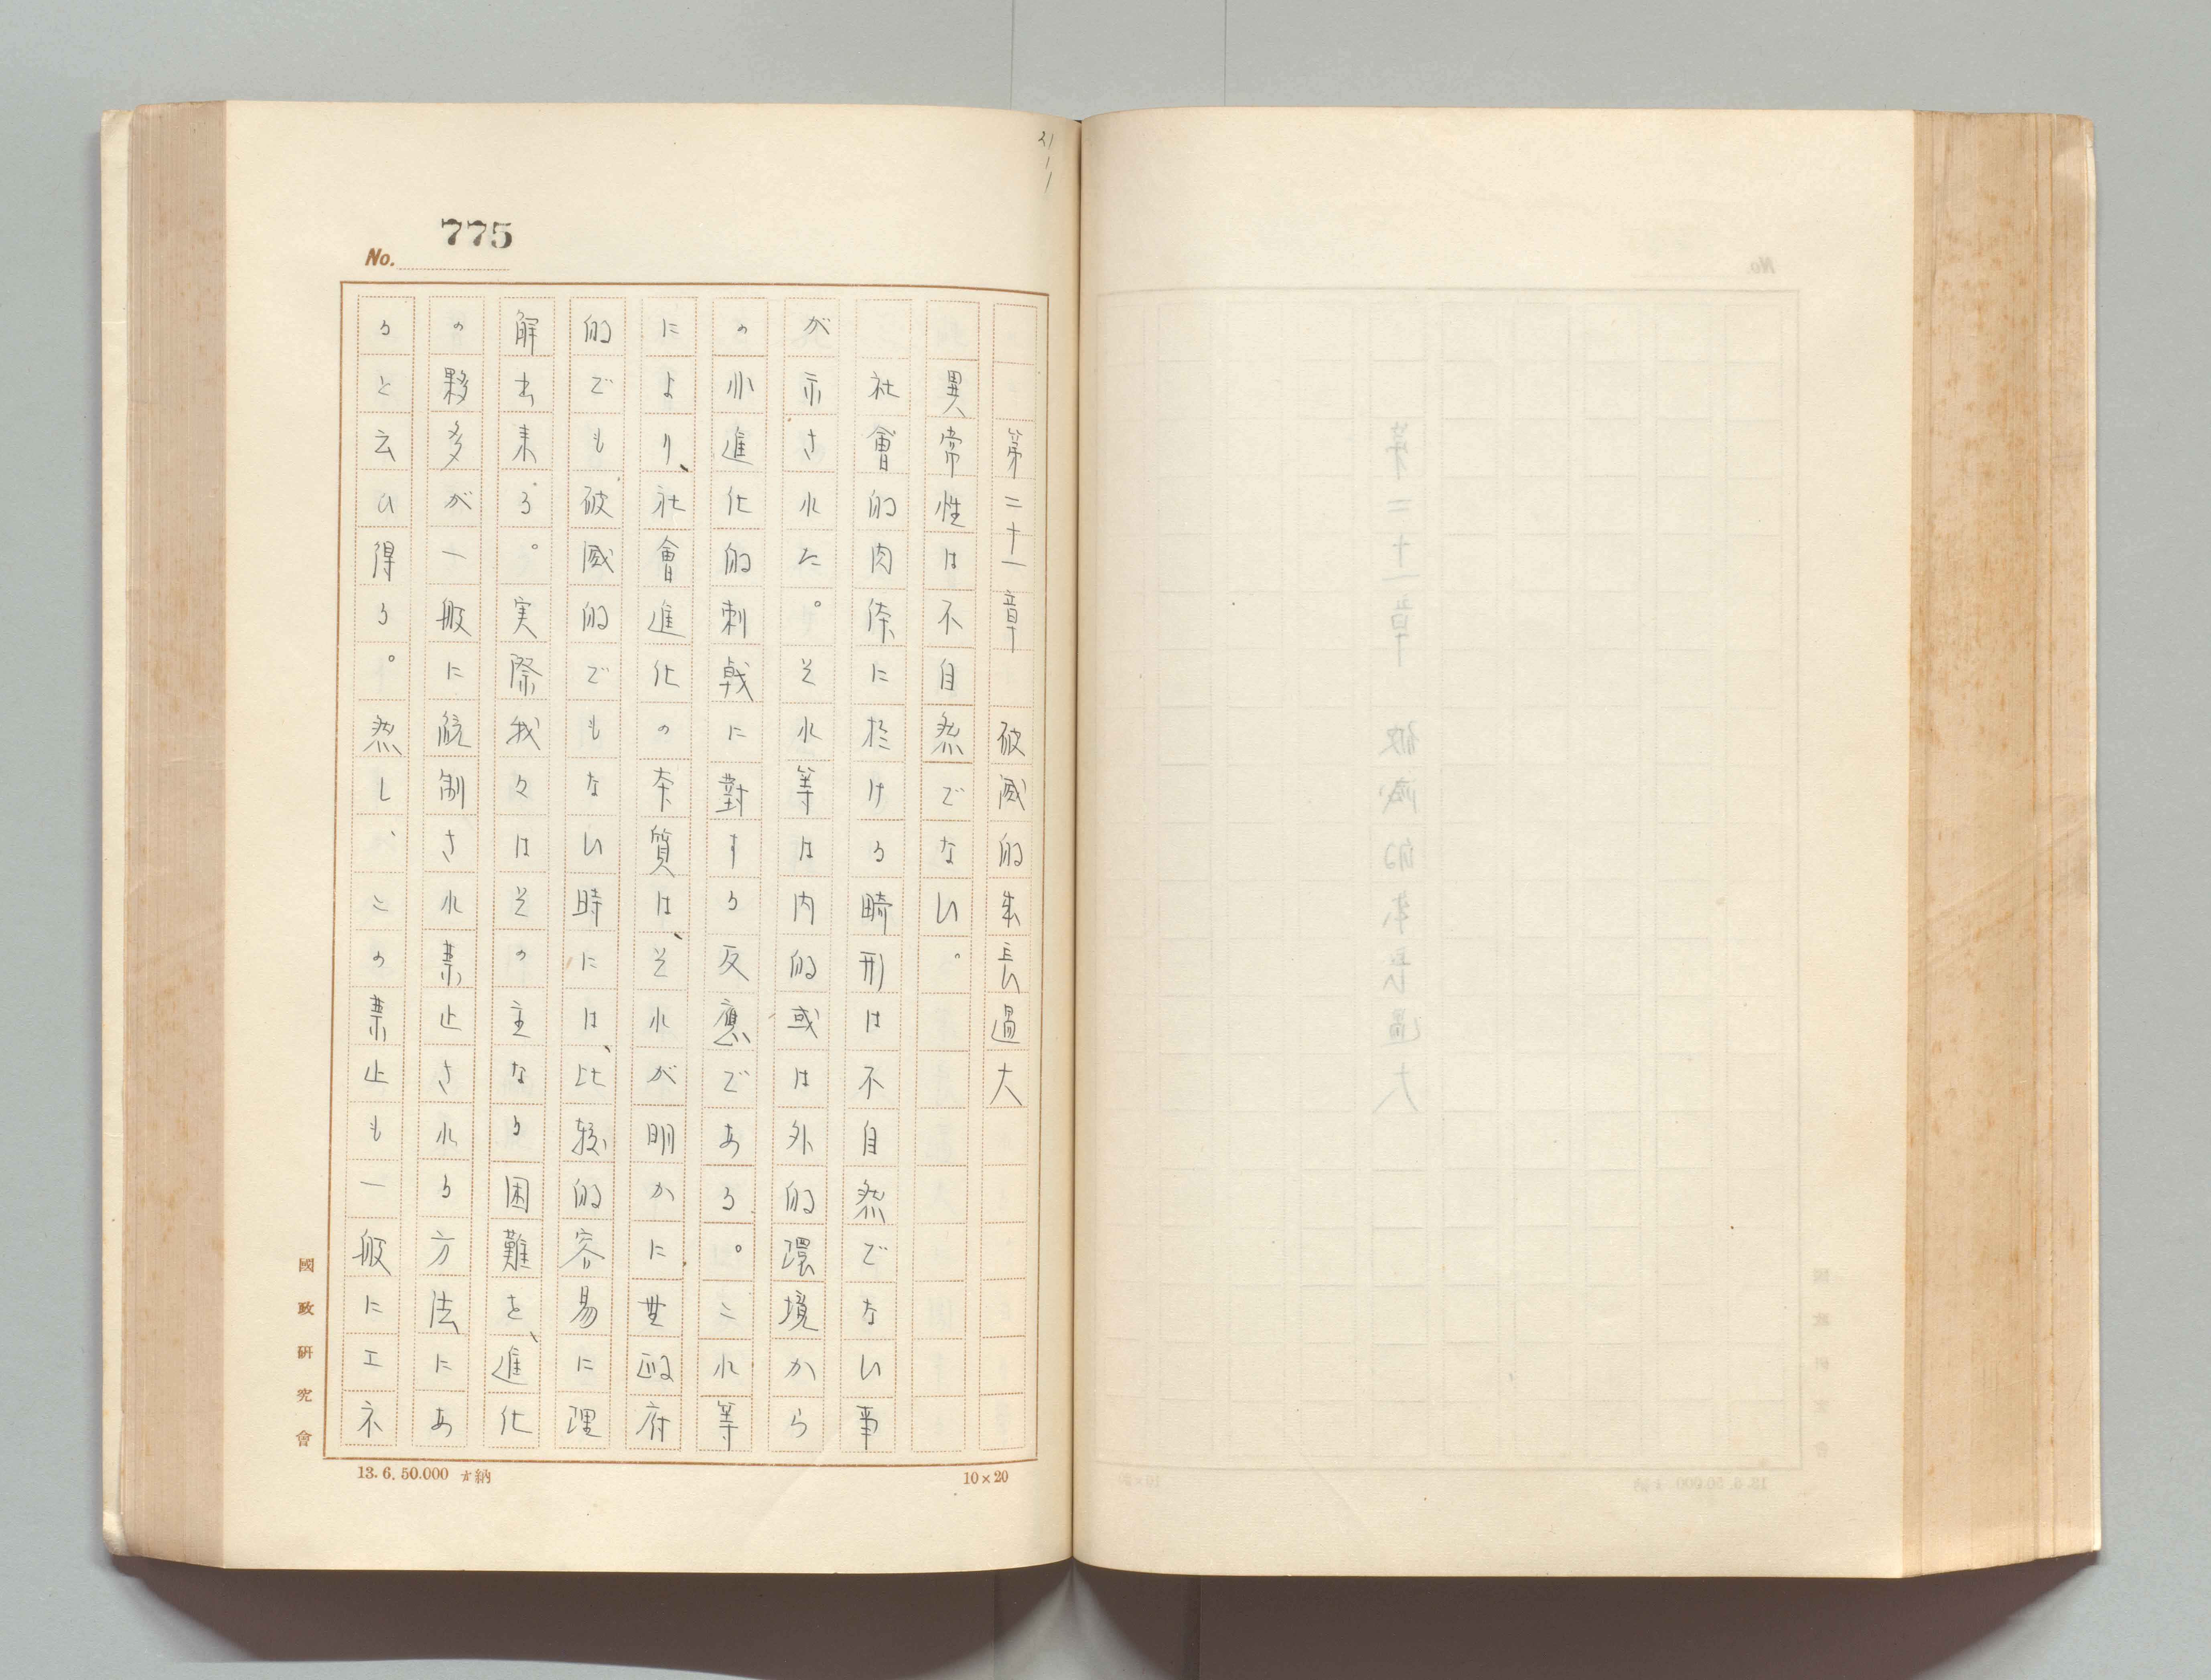 21
1
1
775
No.
第二十一章　破滅的長過大
異常性は不自然でない。
社會的肉体に於ける畸形は不自然でない事
が示された。それ等は内的或は外的環境から
の非進化的刺戟に對する反應である。これ等
により、社會進化の本質は、それが明かに無政府
的でも破滅的でもない時には、比較的容易に理
解出来る。実際我々はその主なる困難を、進化
の夥多が一般に統制され禁止される方法にあ
ると云ひ得る。然し、この禁止も一般にエネ
國政研究會
13. 6. 50.000 納
10×20